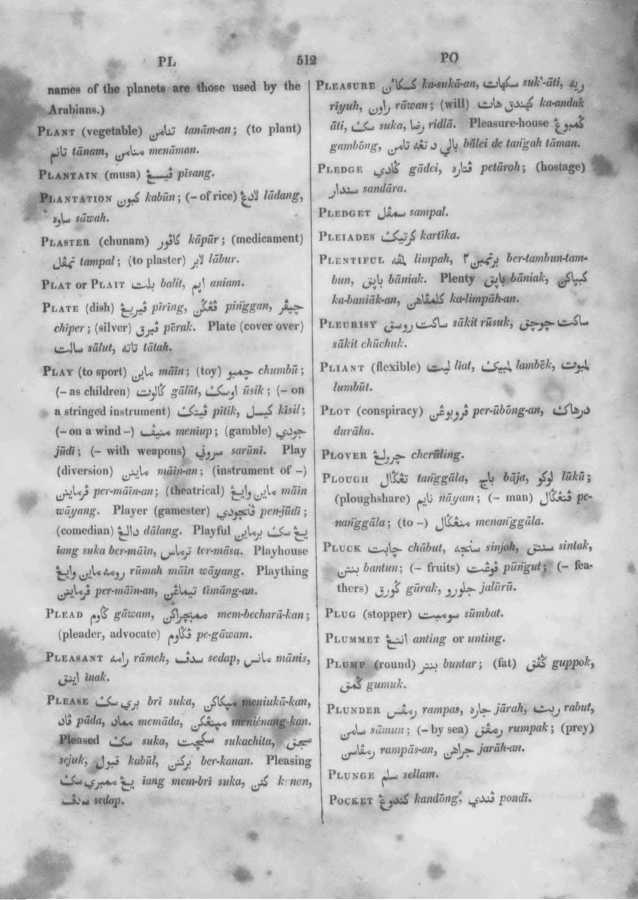 PL 512 PO
names of the planets are those used by the
Arabians.)
PLANT (vegetable) تنامن tanām-an; (to plant)
تانم tānam, منامن menāman.
PLANTAIN (musa) ڤيسڠ pīsang.
PLANTATION كبون kabūn; (– of rice) لادڠ lādang,
ساوه sāwah.
PLASTER (chunam) كاڤور kāpūr; (medicament)
تمڤل tampal; (to plaster) لابر lābur.
PLAT or PLAIT بلت balit, انيم aniam.
PLATE (dish) ڤيريڠ pīring, ڤڠڬن pinggan, چيڤر
chiper; (silver) ڤيرق pērak. Plate (cover over)
سالت sālut, تاته tātah.
PLAY (to sport) ماين māin; (toy) چمبو chumbū;
(– as children) ݢالوت gālūt, اوسك ūsik; (– on
a stringed instrument) ڤيتك pītik, كسيل kisīl;
(– on a wind –) منيڤ meniup; (gamble) جودي
jūdī; (– with weapons) سروني sarūnī. Play
(diversion) ماينن māin-an; (instrument of –)
ڤرماينن per-māin-an; (theatrical) ماين وايڠ māin
wāyang. Player (gamester) ڤنجودي pen-jūdī;
(comedian) دالڠ dālang. Playful يڠ سك برماين
iang suka ber-māin, ترماس ter-māsa. Playhouse
رومه ماين وايڠ rūmah māin wāyang. Plaything
ڤرماينن per-māin-an, تيماڠن tīmāng-an.
PLEAD ݢاوم gāwam, ممبچراكن mem-becharā-kan;
(pleader, advocate) ڤݢاوم pe-gāwam.
PLEASANT رامه rāmeh, سدڤ sedap, مانس mānis,
اينق īnak.
PLEASE بري سك brī suka, مپكاكن meniukā-kan,
ڤاد pāda, ممادا memāda, مپنڠكن menienang-kan.
Pleased سك suka, سكچيت sukachita, سجق
sejuk, قبول kabūl, بركنن ber-kanan. Pleasing
يڠ ممبري سك iang mem-brī suka, كنن kenen,
سدڤ sedap.
PLEASURE كسكائن ka-sukā-an, سكهات suk'-āti, ريه
riyuh, راون rāwan; (will) كهندق هات ka-andak
āti, سك suka, رضا ridlā. Pleasure-house ݢمبوڠ
gambōng, بالي د تڠه تامن bālei de tangah tāman.
PLEDGE ݢادي gādei, ڤتاره petāroh; (hostage)
سندار sandāra.
PLEDGET سمڤل sampal.
PLEIADES كرتيك kartīka.
PLENTIFUL لمڤه limpah, برتمبن٢ ber-tambun-tam-
bun, بايق bāniak. Plenty بايق bāniak, كبپاكن
ka-baniāk-an, كلمڤاهن ka-limpāh-an.
PLEURISY ساكت روسق sākit rūsuk, ساكت چوچق
sākit chūchuk.
PLIANT (flexible) ليت liat, لمبيك lambēk, لمبوت
lumbūt.
PLOT (conspiracy) ڤروبوڠن per-ūbōng-an, درهاك
durāka.
PLOVER چروليڠ cherūling.
PLOUGH تڠݢال tanggāla, باج bāja, لوكو lūkū;
(ploughshare) نايم nāyam; (– man) ڤنڠݢال pe-
nanggāla; (to –) منڠݢال menanggāla.
PLUCK چابت chābut, سنجه sinjoh, سنتق sintak,
بنتن bantun; (– fruits) ڤوڠت pūngut; (– fea-
thers) ݢورق gūrak, جلورو jalūrū.
PLUG (stopper) سومبت sūmbat.
PLUMMET انتڠ anting or unting.
PLUMP (round) بنتر buntar; (fat) ݢڤق guppok,
ݢمق gumuk.
PLUNDER رمڤس rampas, جاره jārah, ربت rabut,
سامن sāmun; (– by sea) رمڤق rumpak; (prey)
رمڤاسن rampās-an, جراهن jarāh-an.
PLUNGE سلم sellam.
POCKET كندوڠ kandōng, ڤندي pondī.